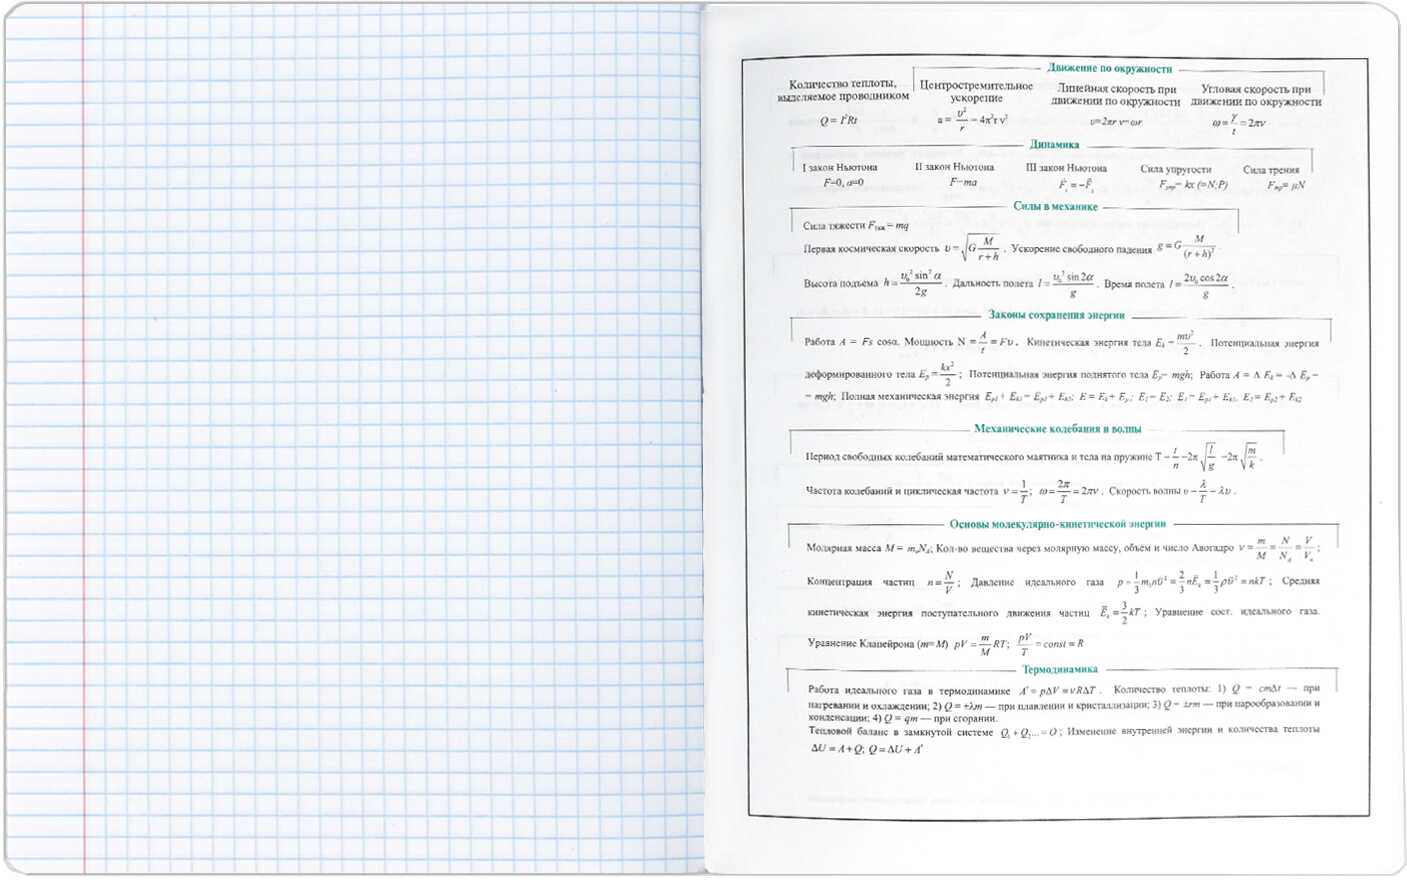 Движение по окружности
Количество теплоты, выделяемое проводником
Q = I²Rt
Центростремительное ускорение
a = υ²/r = 4π²r ν²
Линейная скорость при движении по окружности
υ=2πr ν=ωr
Угловая скорость при движении по окружности
ω = γ/t = 2πν
Динамика
I закон Ньютона
F=0, a=0
II закон Ньютона
F=ma
III закон Ньютона
Сила упругости
Fупр= kx (=N;P)
Сила трения
Fтр= μN
Силы в механике
Сила тяжести Fтяж = mq
Первая космическая скорость υ = √(G M/(r+h)) . Ускорение свободного падения g = G M/(r+h)²
Высота подъема h = υ₀² sin² α/2g . Дальность полета l = υ₀² sin 2α/g . Время полета l = 2υ₀ cos 2α/g .
Законы сохранения энергии
Работа A = Fs cosα. Мощность N = A/t = Fυ . Кинетическая энергия тела Ek = mυ²/2 . Потенциальная энергия
деформированного тела Ep = kx²/2 ; Потенциальная энергия поднятого тела Ep= mgh; Работа A = Δ Ek = -Δ Ep =
= mgh; Полная механическая энергия
Механические колебания и волны
Период свободных колебаний математического маятника и тела на пружине T = t/n =2π √(l/g) =2π √(m/k) .
Частота колебаний и циклическая частота ν = 1/T ; ω = 2π/T = 2πν . Скорость волны υ = λ/T = λυ .
Основы молекулярно-кинетической энергии
Молярная масса M = mₒNA; Кол-во вещества через молярную массу, объем и число Авогадро ν = m/M = N/NA = V/Vм ;
Концентрация частиц n = N/V ; Давление идеального газа p = 1/3 m₀nῡ² = 2/3 nĒk = 1/3 ρῡ² = nkT ; Средняя
кинетическая энергия поступательного движения частиц Ēk = 3/2 kT ; Уравнение сост. идеального газа.
Уравнение Клапейрона (m=M) pV = m/M RT; pV/T = const = R
Термодинамика
Работа идеального газа в термодинамике A' = pΔV = νRΔT . Количество теплоты: 1) Q = cmΔt — при
нагревании и охлаждении; 2) Q = ±λm — при плавлении и кристаллизации; 3) Q = ±rm — при парообразовании и
конденсации; 4) Q = qm — при сгорании.
Тепловой баланс в замкнутой системе Q₁ + Q₂... = O ; Изменение внутренней энергии и количества теплоты
ΔU = A + Q; Q = ΔU + A'